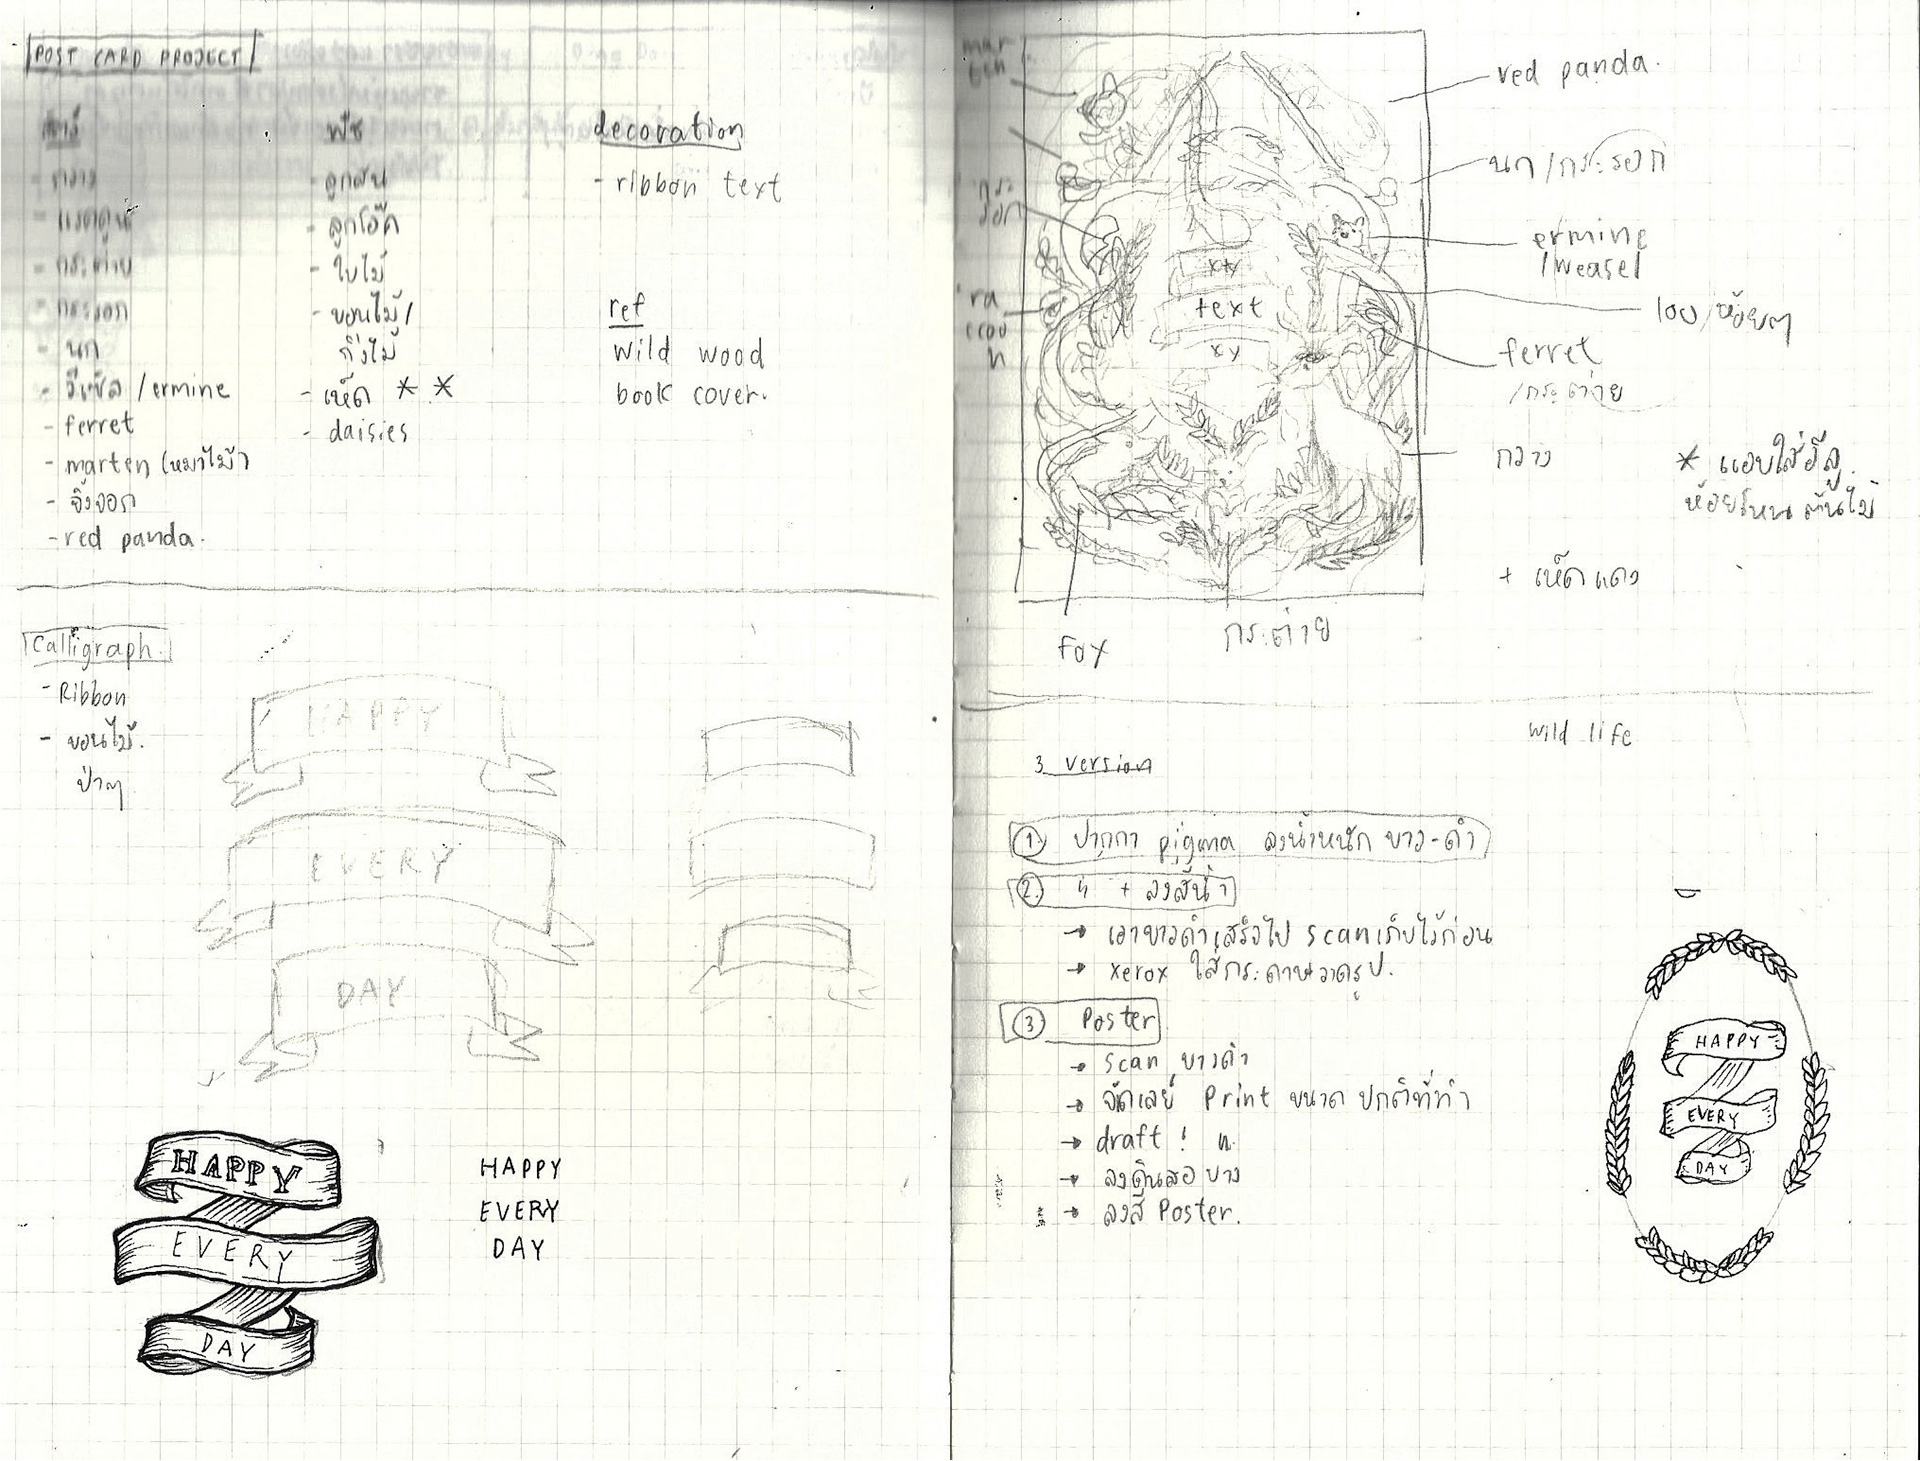 POST CARD PROJECT
สัตว์
- กวาง
- แรคคูน
- กระต่าย
- กระรอก
- นก
- วีเซิล / ermine
- ferret
- marten (หมาไม้)
- จิ้งจอก
- red panda.
พืช
- ลูกสน
- ลูกโอ๊ค
- ใบไม้
- ขอนไม้ /
กิ่งไม้
- เห็ด * *
- daisies
decoration
- ribbon text
ref
wild wood
book cover.
Calligraph.
- Ribbon
- ขอนไม้.
ป่าๆ
HAPPY
EVERY
DAY
HAPPY
EVERY
DAY
HAPPY
EVERY
DAY
mar
ten
กระ
รอก
ra
ccoo
n
text
xy
red panda.
นก / กระรอก
ermine
/weasel
ferret
/กระต่าย
กวาง
* แอบใส่อีกู.
ห้อยโหนต้นไม้
+ เห็ดแดง
Fox
กระต่าย
wild life
3 version
1. ปากกา pigma ลงน้ำหนัก ขาว-ดำ
2. + ลงสีน้ำ
→ เอาขาวดำเสร็จไป scan เก็บไว้ก่อน
→ xerox ใส่กระดาษวาดรูป.
3 Poster
→ scan ขาวดำ
→ จัดเลย์ Print ขนาด ปกติที่ทำ
→ draft !
→ ลงดินสอ บาง
→ ลงสี Poster.
HAPPY
EVERY
DAY